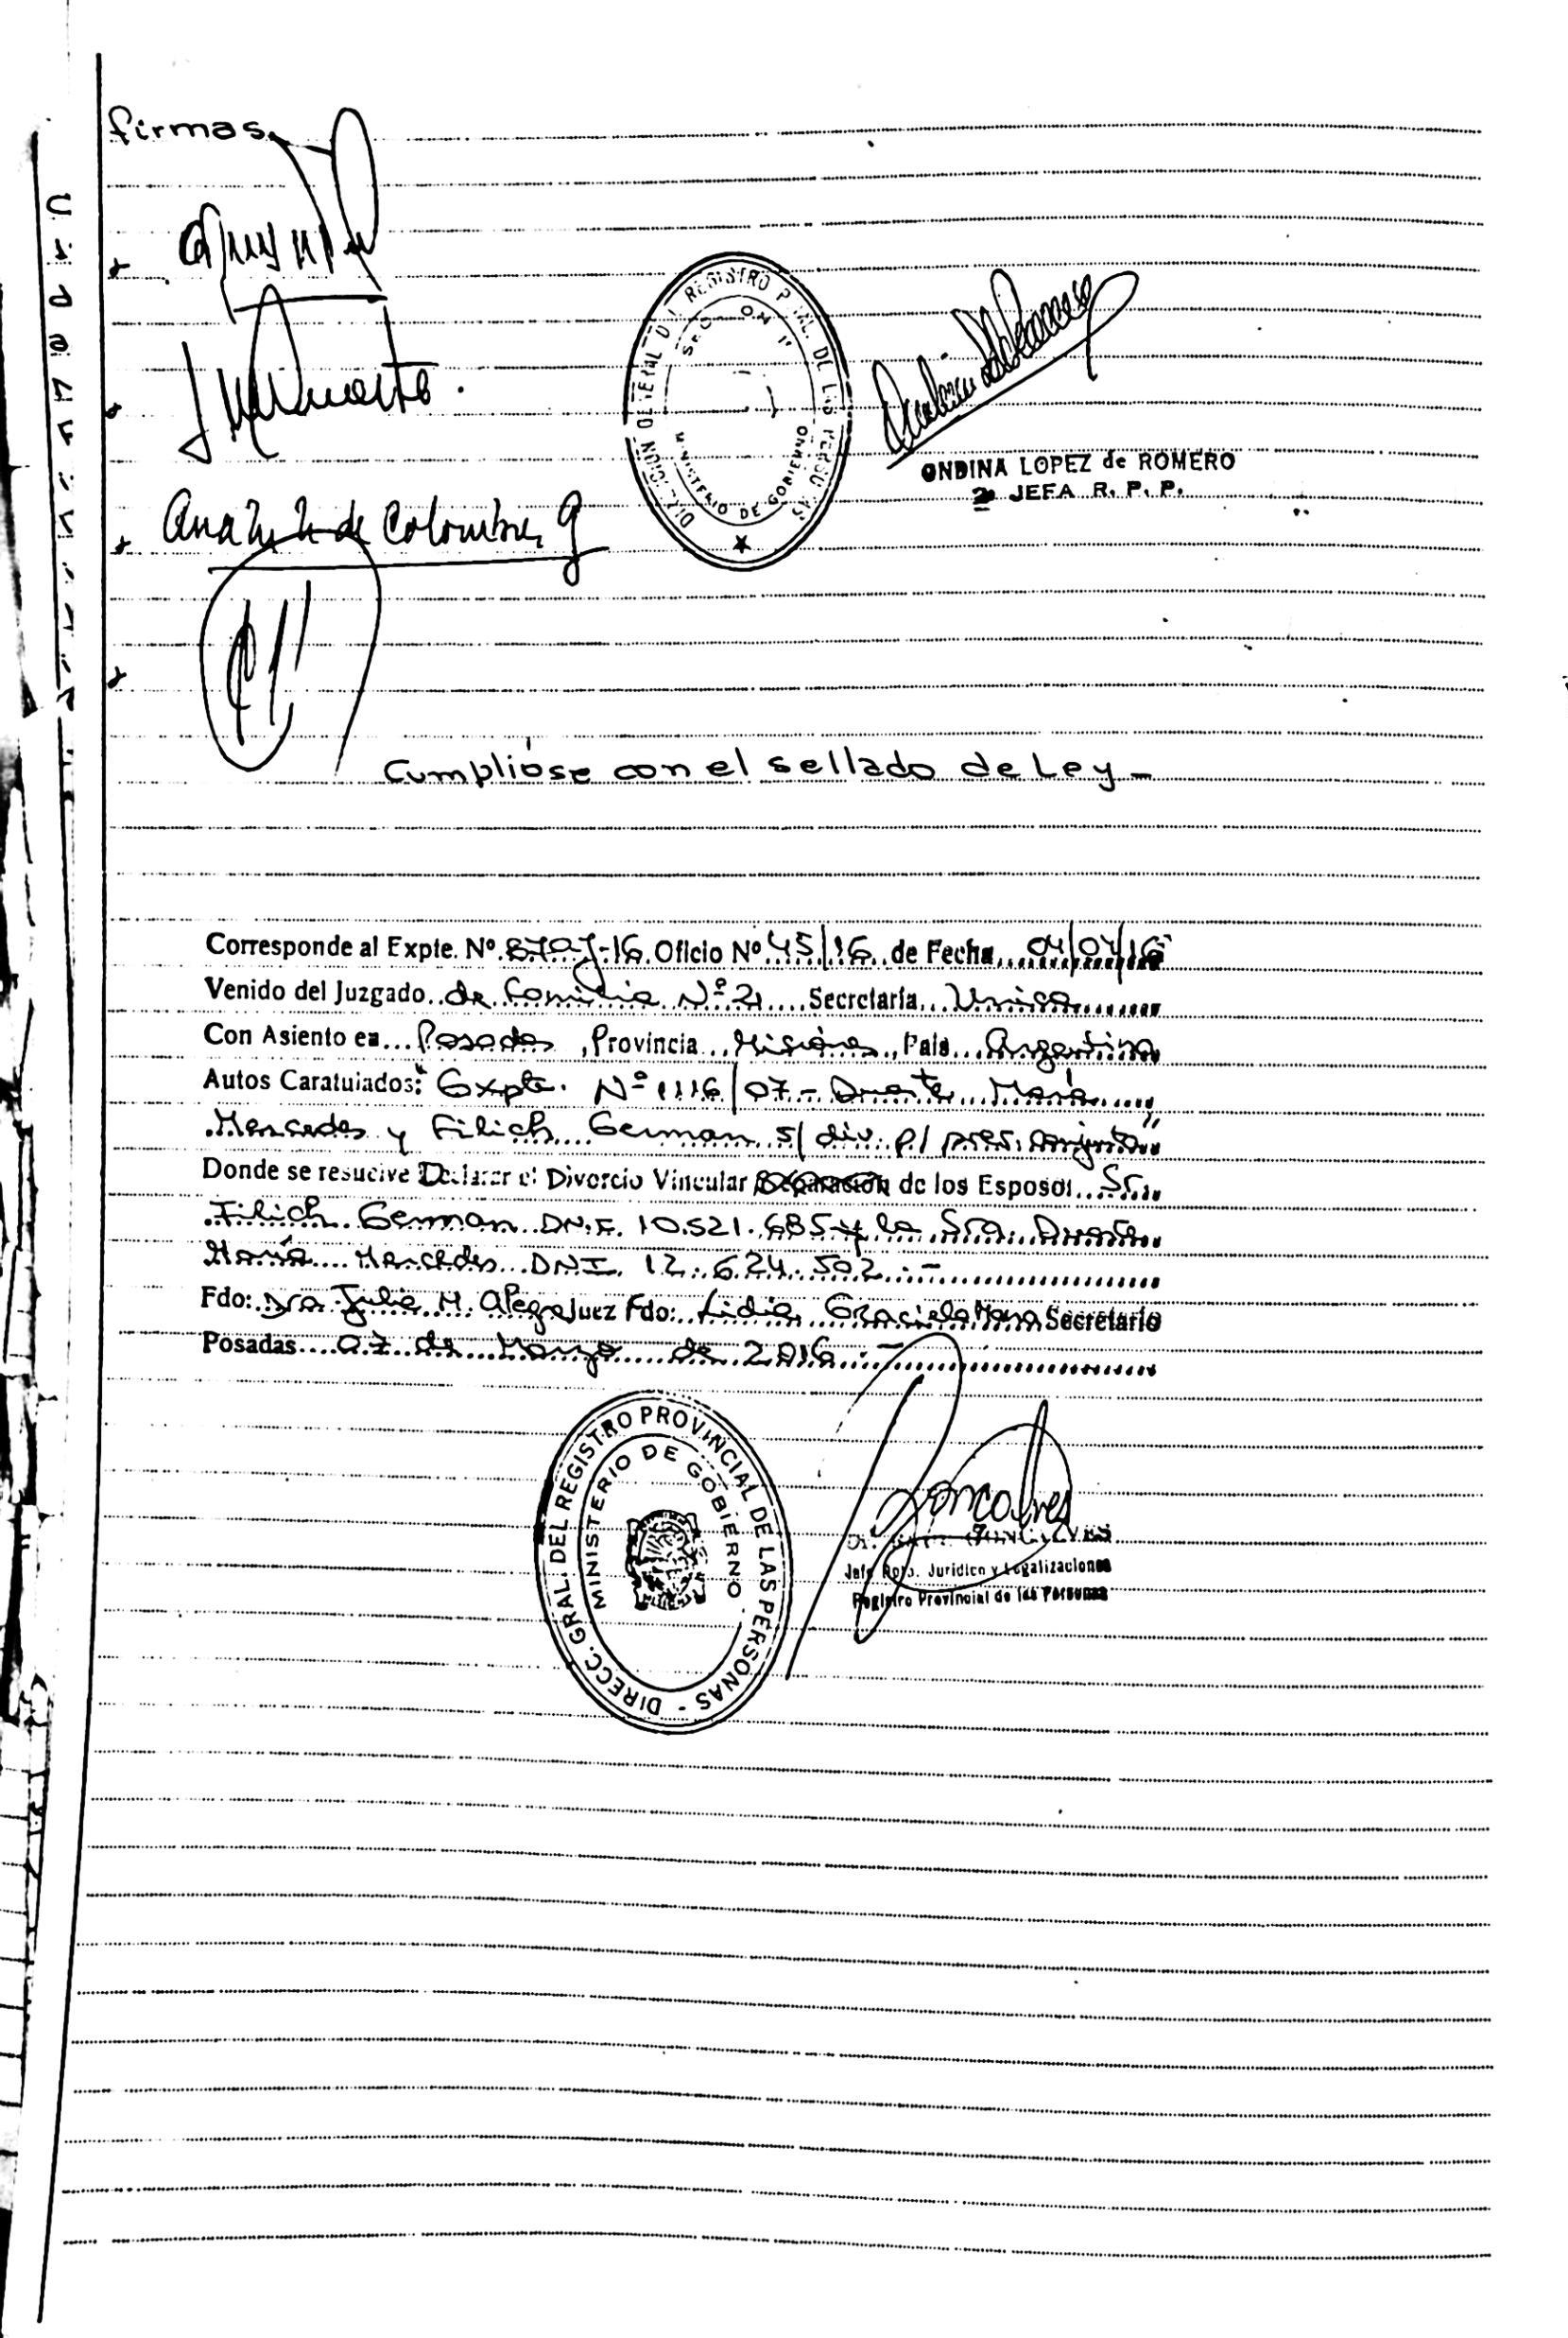 firmas
Ana M. M. de Colombo
DIRECCION GENERAL DEL REGISTRO PCIAL. DE LAS PERSONAS
MINISTERIO DE GOBIERNO
ONDINA LOPEZ de ROMERO
2ª JEFA R. P. P.
Cumplióse con el sellado de Ley -
Corresponde al Expte. Nº 8707-16 Oficio Nº 45/16 de Fecha 04/04/16
Venido del Juzgado de Familia Nº 2 Secretaría Unica
Con Asiento en Posadas, Provincia Misiones, País Argentina
Autos Caratulados: "Expte. Nº 1116/07 - Duarte María
Mercedes y Filich German s/ div. p/ pres. conjunta"
Donde se resuelve Declarar el Divorcio Vincular Separación de los Esposos Sr.
Filich German D.N.I. 10.521.685 y la Sra. Duarte
María Mercedes DNI. 12.624.502.-
Fdo: Dra Julia M. Alegre Juez Fdo: Lidia Graciela Secretario
Posadas 07 de Marzo de 2016.-
DIRECC. GRAL. DEL REGISTRO PROVINCIAL DE LAS PERSONAS -
MINISTERIO DE GOBIERNO -
Dr. GONCALVES
Jefe Dpto. Jurídico y Legalizaciones
Registro Provincial de las Personas